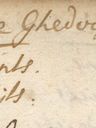 e Ghedo
nts.
its.